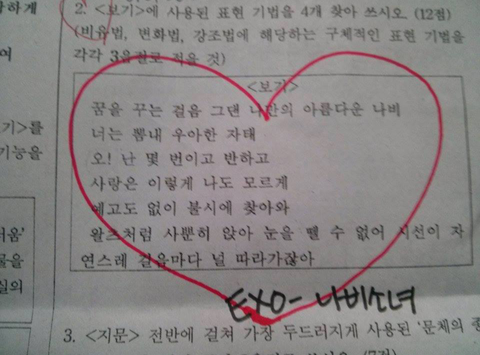 하게
2. <보기>에 사용된 표현 기법을 4개 찾아 쓰시오. (12점)
(비유법, 변화법, 강조법에 해당하는 구체적인 표현 기법을
여
각각 3음절로 적을 것)
<보기>
꿈을 꾸는 걸음 그댄 나만의 아름다운 나비
기>를
너는 뽐내 우아한 자태
기능을
오! 난 몇 번이고 반하고
사랑은 이렇게 나도 모르게
예고도 없이 불시에 찾아와
러움'
왈츠처럼 사뿐히 앉아 눈을 뗄 수 없어 시선이 자
물을
연스레 걸음마다 널 따라가잖아
실의
EXO-나비소녀
3. <지문> 전반에 걸쳐 가장 두드러지게 사용된 '문체의 종